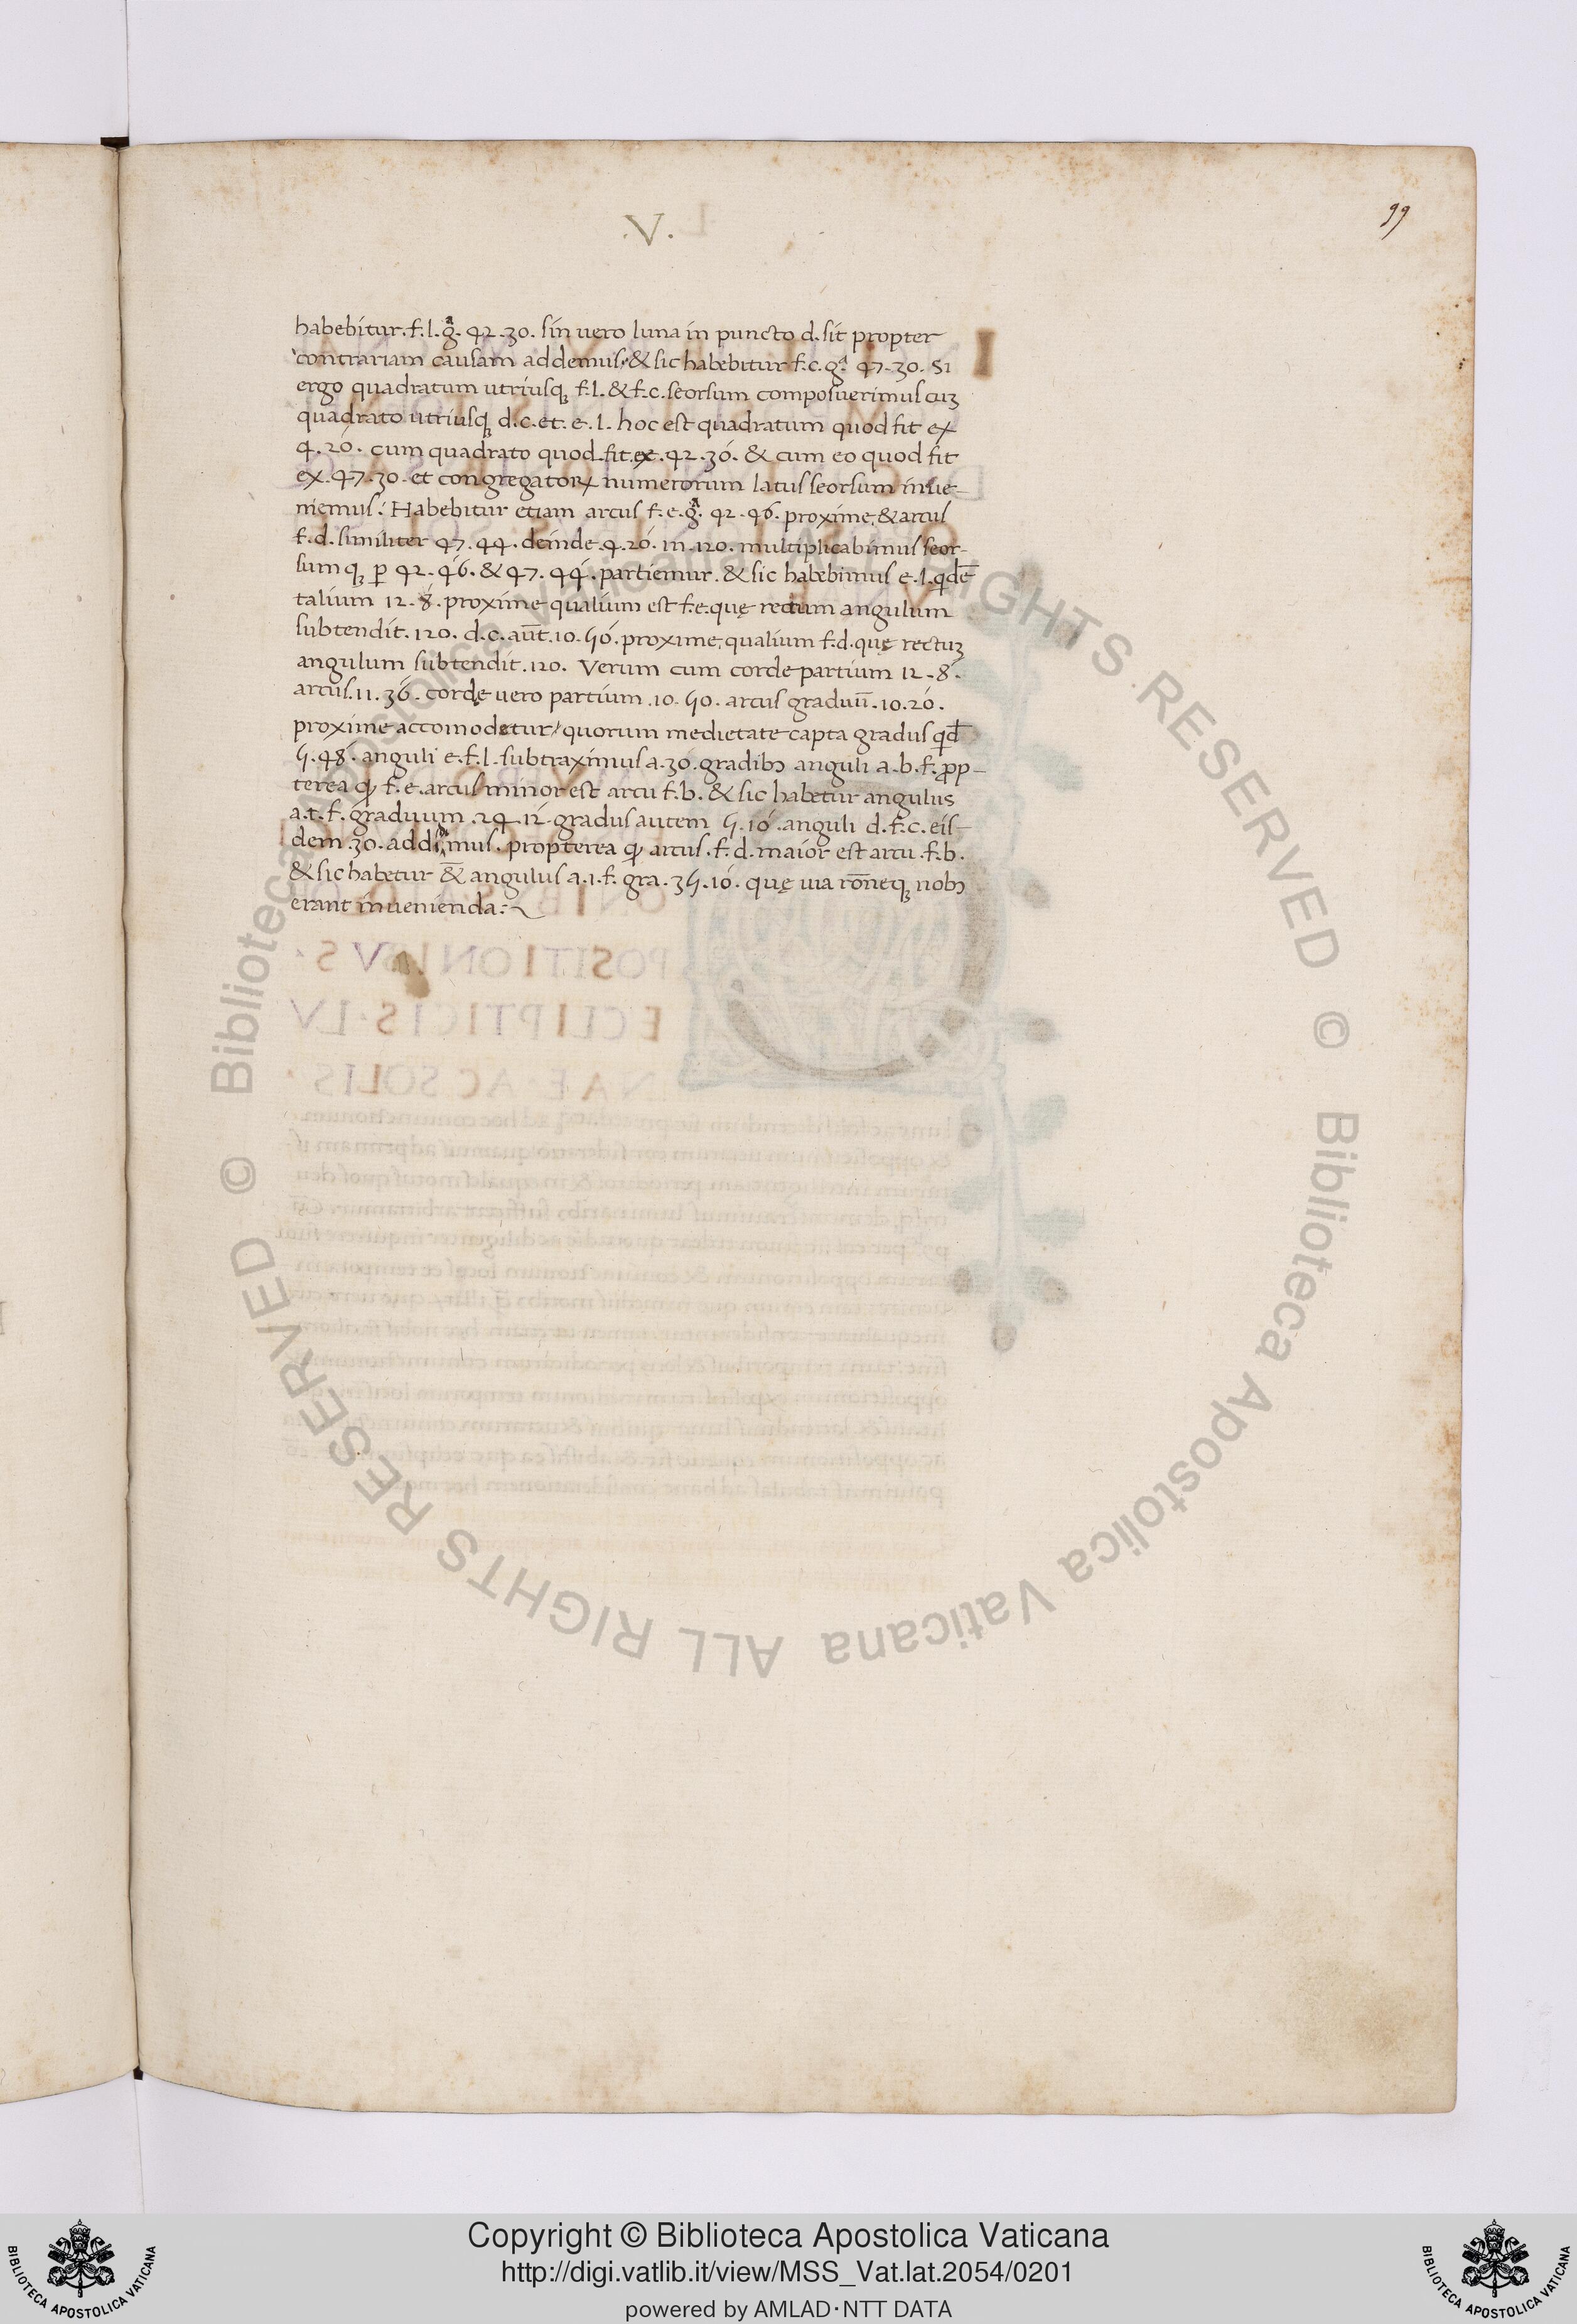 .V.
99
habebitur.f.l.gᵃ. 42.30. sin vero luna in puncto d.sit propter
contrariam causam addemus, & sic habebitur f.c.gᵃ. 47.30. Si
ergo quadratum utriusqꝫ f.l.& f.c.seorsum composuerimus cuꝫ
quadrato utriusqꝫ d.c.et.e.l. hoc est quadratum quod fit ex
4.20. cum quadrato quod.fit.ex.42.30. & cum eo quod fit
ex.47.30. et congregatoꝝ numerorum latus seorsum inue-
niemus: Habebitur etiam arcus f.e.gᵃ. 42.46. proxime, & arcus
f.d.similiter 47.44. deinde.4.20.in.120. multiplicabimus seor-
sum qꝫ ꝑ 42.46.& 47.44. partiemur. & sic habebimus e.l. qd̄ē
talium 12.8. proxime qualium est f.e.quę rectum angulum
subtendit.120. d.c.aūt.10.50. proxime, qualium f.d.quę rectuꝫ
angulum subtendit.120. Verum cum corde partium 12.8.
arcus.11.36. cordę vero partium.10.50. arcus graduū.10.20.
proxime accomodetur/ quorum medietate capta gradus qd̄
5.48. anguli e.f.l.subtraximus a.30.gradibꝫ anguli a.b.f. ꝓp-
terea ꝙ f.e.arcus minor est arcu f.b. & sic habetur angulus
a.t.f. graduum.24.12.gradus autem 5.10.anguli d.f.c.eis-
dem.30.addimus. propterea ꝙ arcus.f.d.maior est arcu.f.b.
& sic habetur &̄ angulus a.i.f. gra.35.10. quę uia rōneqꝫ nobꝫ
erant inuenienda:~
© Biblioteca Apostolica Vaticana ALL RIGHTS RESERVED © Biblioteca Apostolica Vaticana ALL RIGHTS RESERVED
BIBLIOTECA APOSTOLICA VATICANA
Copyright © Biblioteca Apostolica Vaticana
http://digi.vatlib.it/view/MSS_Vat.lat.2054/0201
powered by AMLAD·NTT DATA
BIBLIOTECA APOSTOLICA VATICANA